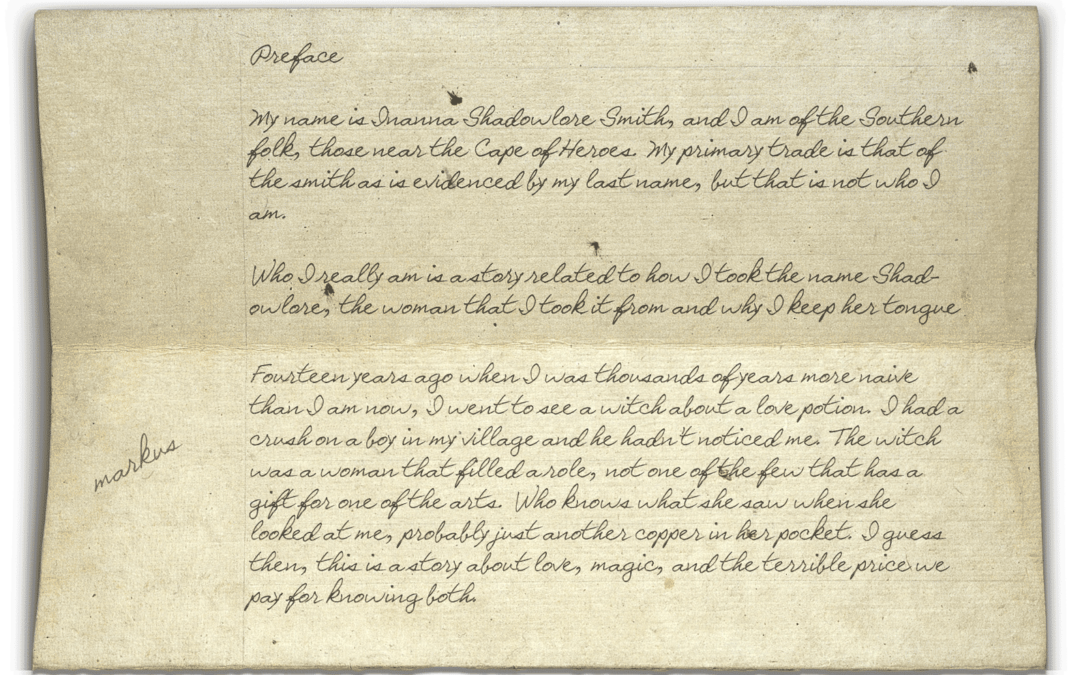 Preface
My name is Inanna Shadowlore Smith, and I am of the Southern
folk, those near the Cape of Heroes. My primary trade is that of
the smith as is evidenced by my last name, but that is not who I
am.
Who I really am is a story related to how I took the name Shad-
owlore, the woman that I took it from and why I keep her tongue
Fourteen years ago when I was thousands of years more naive
than I am now, I went to see a witch about a love potion. I had a
crush on a boy in my village and he hadn't noticed me. The witch
was a woman that filled a role, not one of the few that has a
gift for one of the arts. Who knows what she saw when she
looked at me, probably just another copper in her pocket. I guess
then, this is a story about love, magic, and the terrible price we
pay for knowing both.
markus